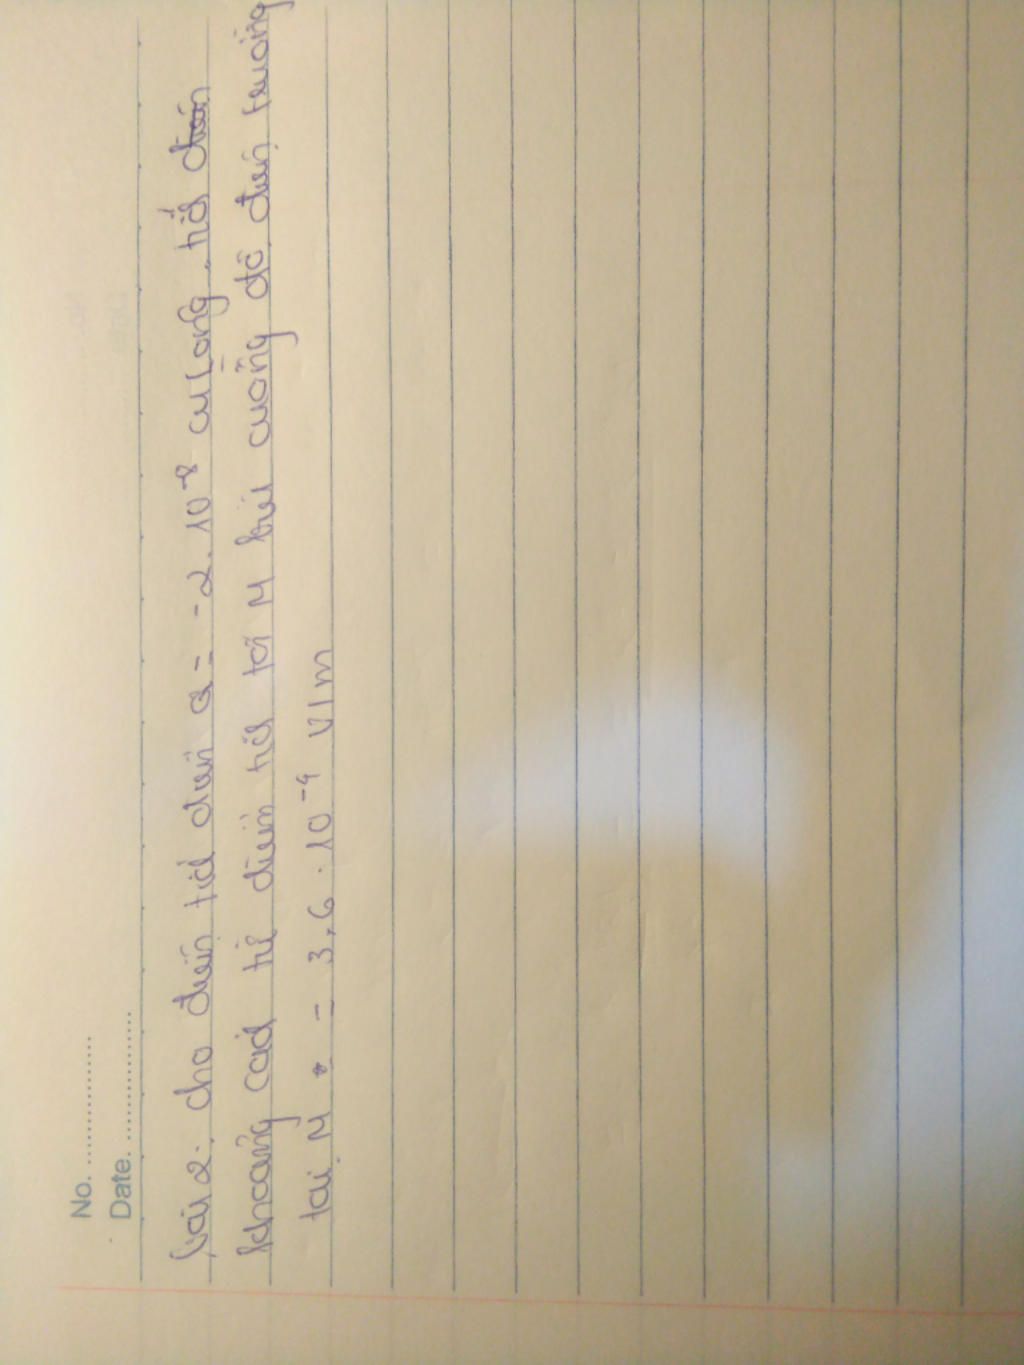 No. ................
Date. ................
bài 2: cho điện tích điện Q = -2.10⁻⁸ culông, tích điện
khoảng cách từ điện tích tới M biết cường độ điện trường
tại M = 3,6 . 10⁻⁴ V/m